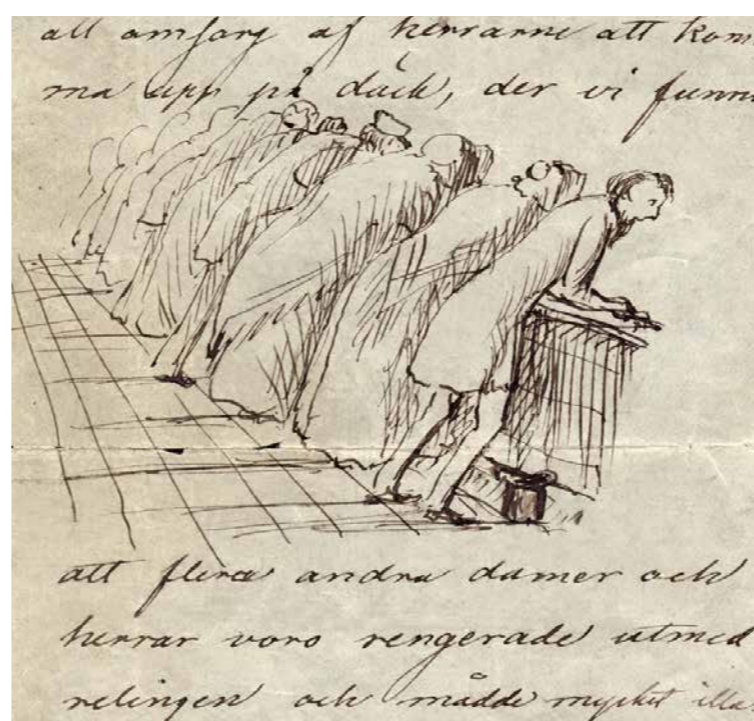 all omsorg af herrarne att kom
ma upp på däck, der vi funno
att flera andra damer och
herrar voro rengerade utmed
relingen och mådde mycket illa